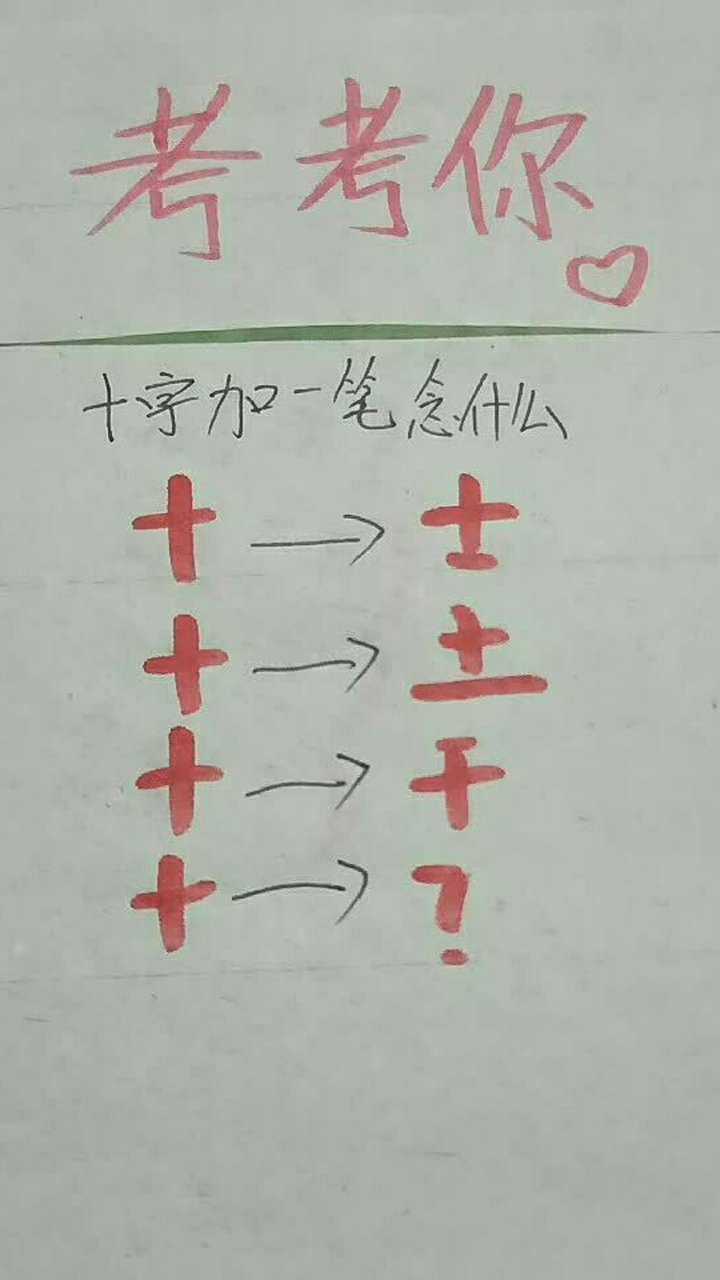 考考你
十字加一笔念什么
十→士
十→土
十→干
十→?